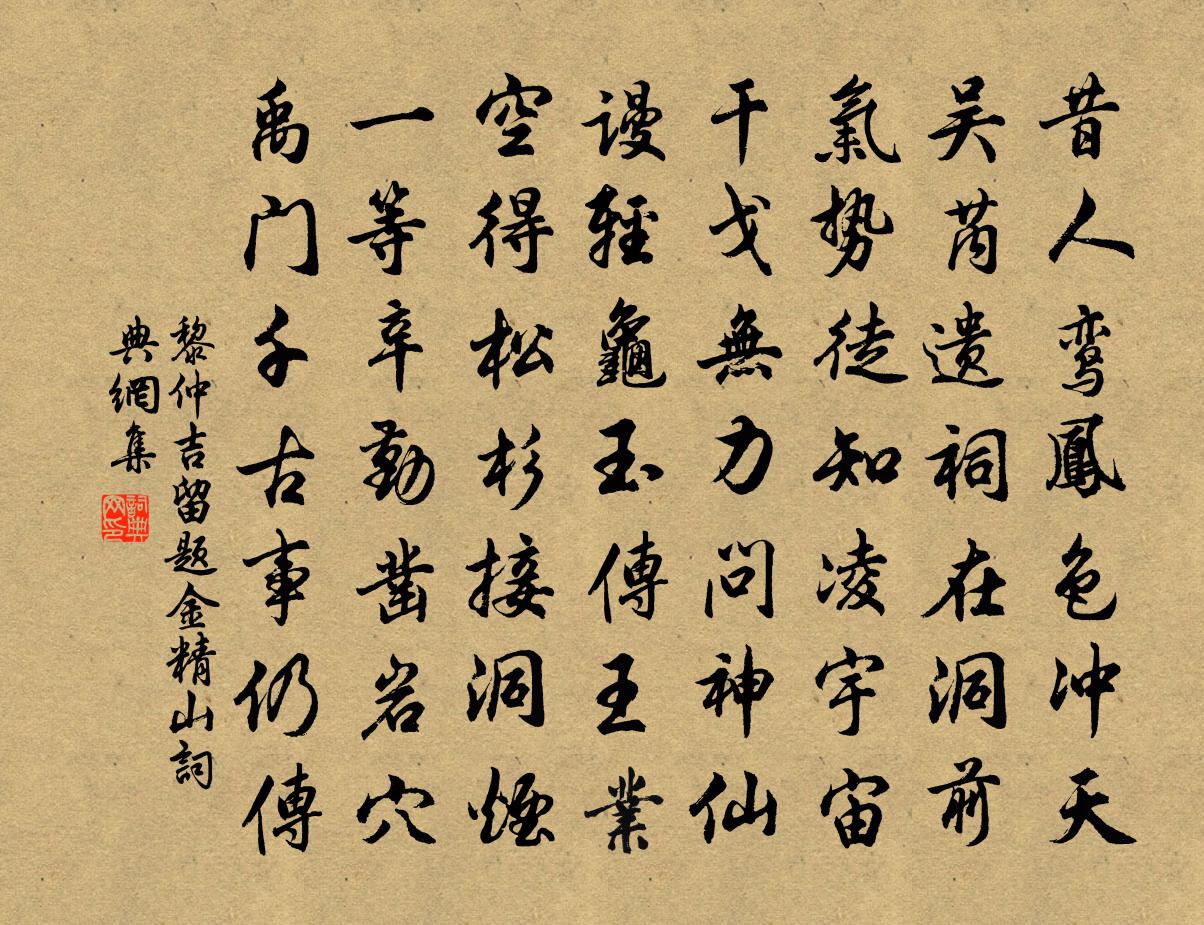 昔人鸾鳳色冲天
吴芮遗祠在洞前
氣势徒知凌宇宙
干戈無力问神仙
谩輕龜玉傳王業
空得松杉接洞煙
一等辛勤凿岩穴
禹门千古事仍傳
黎仲吉留题金精山詞
典網集
詞典网印